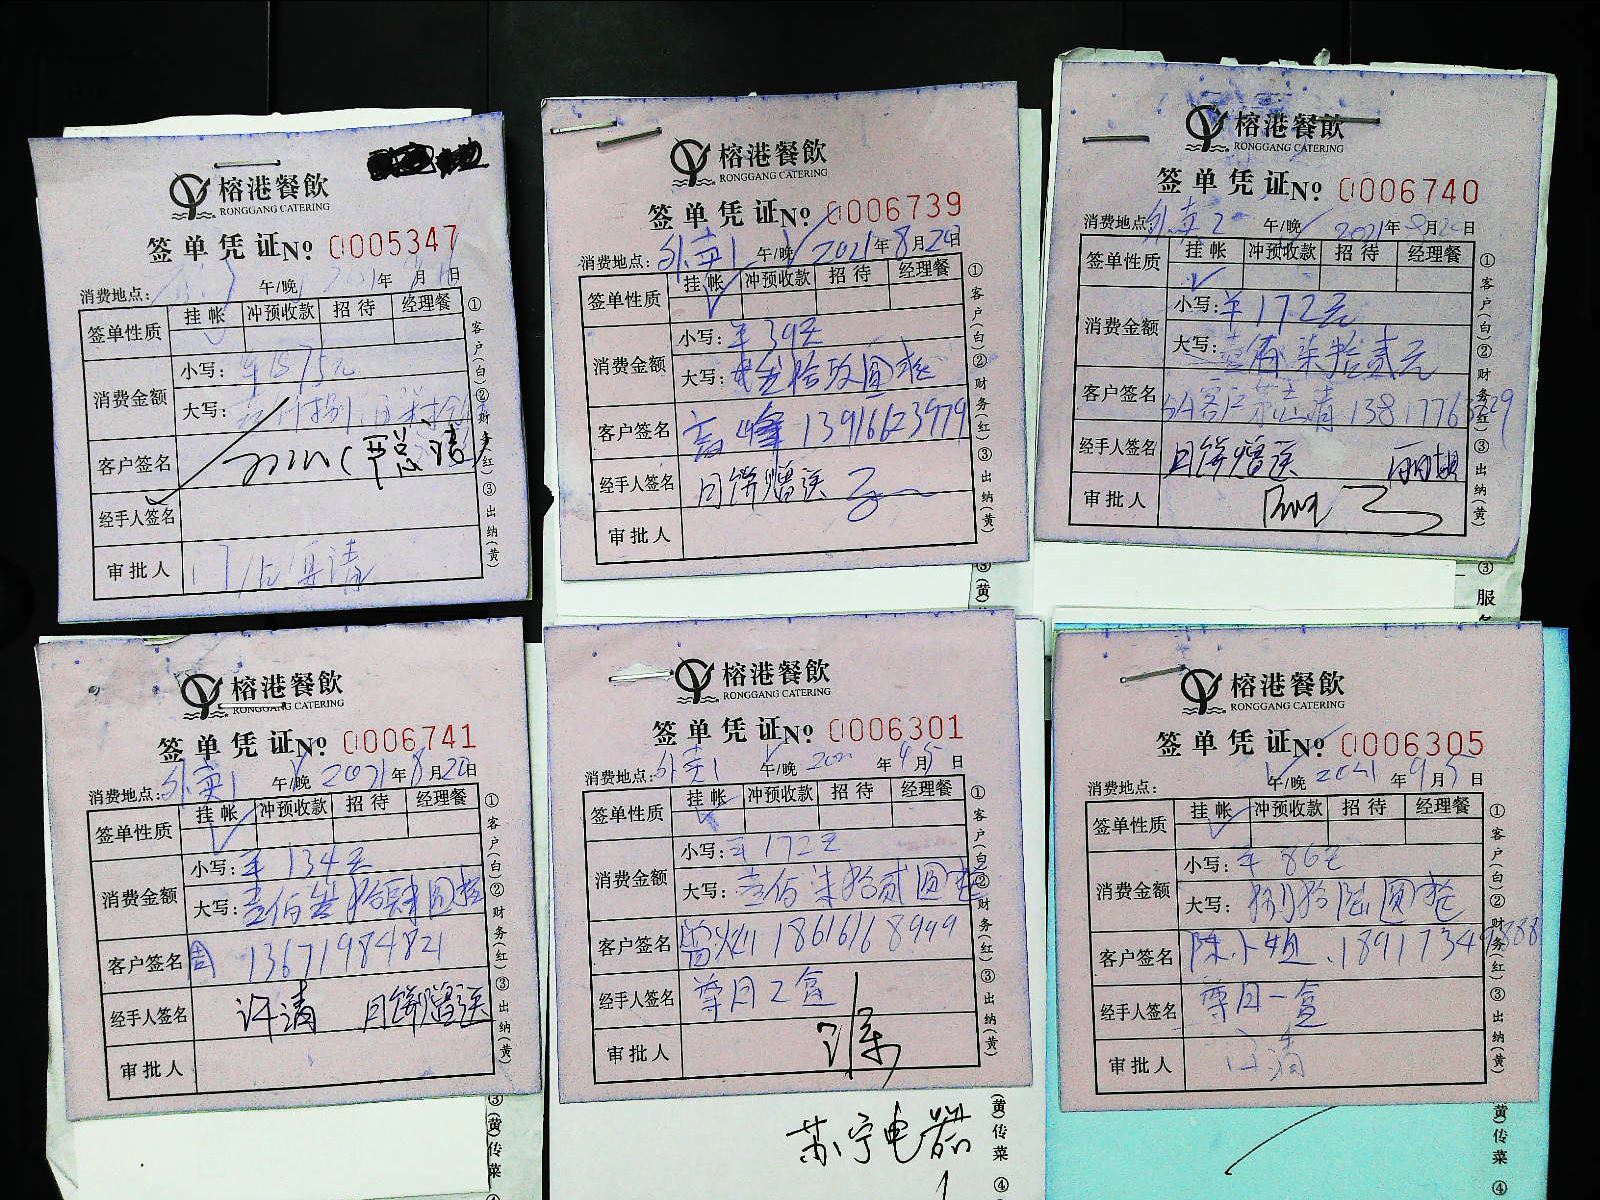 榕港餐飲
RONGGANG CATERING
签单凭证 No 0005347
消费地点: 午/晚 2021年 月 日
签单性质 挂帐 冲预收款 招待 经理餐
消费金额
小写: 1575元
大写:
客户签名
经手人签名
审批人
①客户(白)②财务(红)③出纳(黄)
榕港餐飲
RONGGANG CATERING
签单凭证 No 0006739
消费地点: 外卖1 午/晚 2021年8月20日
签单性质 挂帐 冲预收款 招待 经理餐
消费金额
小写: 39元
大写:
客户签名 高峰 13916623979
经手人签名 月饼赠送
审批人
①客户(白)②财务(红)③出纳(黄)
榕港餐飲
RONGGANG CATERING
签单凭证 No 0006740
消费地点: 外卖2 午/晚 2021年8月20日
签单性质 挂帐 冲预收款 招待 经理餐
消费金额
小写: 172元
大写: 壹佰柒拾贰元
客户签名
经手人签名 月饼赠送
审批人
①客户(白)②财务(红)③出纳(黄)
③服
榕港餐飲
RONGGANG CATERING
签单凭证 No 0006741
消费地点: 外卖1 午/晚 2021年8月20日
签单性质 挂帐 冲预收款 招待 经理餐
消费金额
小写: 134元
大写: 壹佰叁拾肆圆整
客户签名 周 13671984821
经手人签名 许请 月饼赠送
审批人
①客户(白)②财务(红)③出纳(黄)
③(黄)传菜
榕港餐飲
RONGGANG CATERING
签单凭证 No 0006301
消费地点: 外卖1 午/晚 年9月5日
签单性质 挂帐 冲预收款 招待 经理餐
消费金额
小写: 172元
大写: 壹佰柒拾贰圆整
客户签名 18616168949
经手人签名 尊月2盒
审批人
①客户(白)②财务(红)③出纳(黄)
苏宁电器
(黄)传菜④
榕港餐飲
RONGGANG CATERING
签单凭证 No 0006305
消费地点: 午/晚 2021年9月5日
签单性质 挂帐 冲预收款 招待 经理餐
消费金额
小写: 86元
大写: 捌拾陆圆整
客户签名 陈小姐
经手人签名 尊月一盒
审批人
①客户(白)②财务(红)③出纳(黄)
(黄)传菜④